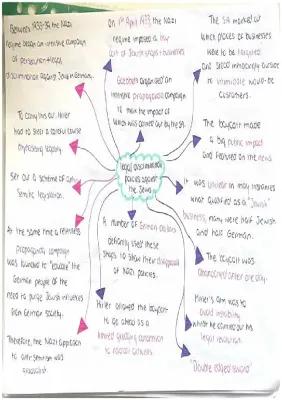 Between 1933-34 the Nazi
regime began an intensive campaign
of persecution + legal
discrimination against Jewish Germans.
To carry this out, Hitler
had to steer a careful course
emphasising legality.
Set out a scheme of anti-
semitic legislation.
At the same time a relentless
propaganda campaign
was launched to "educate" the
German people of the
need to purge Jewish influences
from German society.
Therefore, the Nazi approach
to anti-semitism was
gradualist.
On 1st April 1933, the Nazi
regime imposed a boy-
cott of Jewish shops + businesses
Goebbels organised an
intensive propaganda campaign
to main the impact of
which was carried out by the SA.
legal discriminatory
policies against
the Jews
A number of German citizens
defiantly used these
shops to show their disapproval
of Nazi policies.
Hitler allowed the boycott
to go ahead as a
limited grudging concession
to radical activists.
The SA marked out
which places or businesses
were to be targeted
and stood menacingly outside
to intimidate would-be
customers.
The boycott made
a big public impact
and featured on the news
It was unclear in many instances
what qualified as a "Jewish"
business, many were half Jewish
and half German.
The boycott was
abandoned after one day.
Hitler's aim was to
avoid instability
whilst he carried out his
legal revolution.
"Double edged sword"